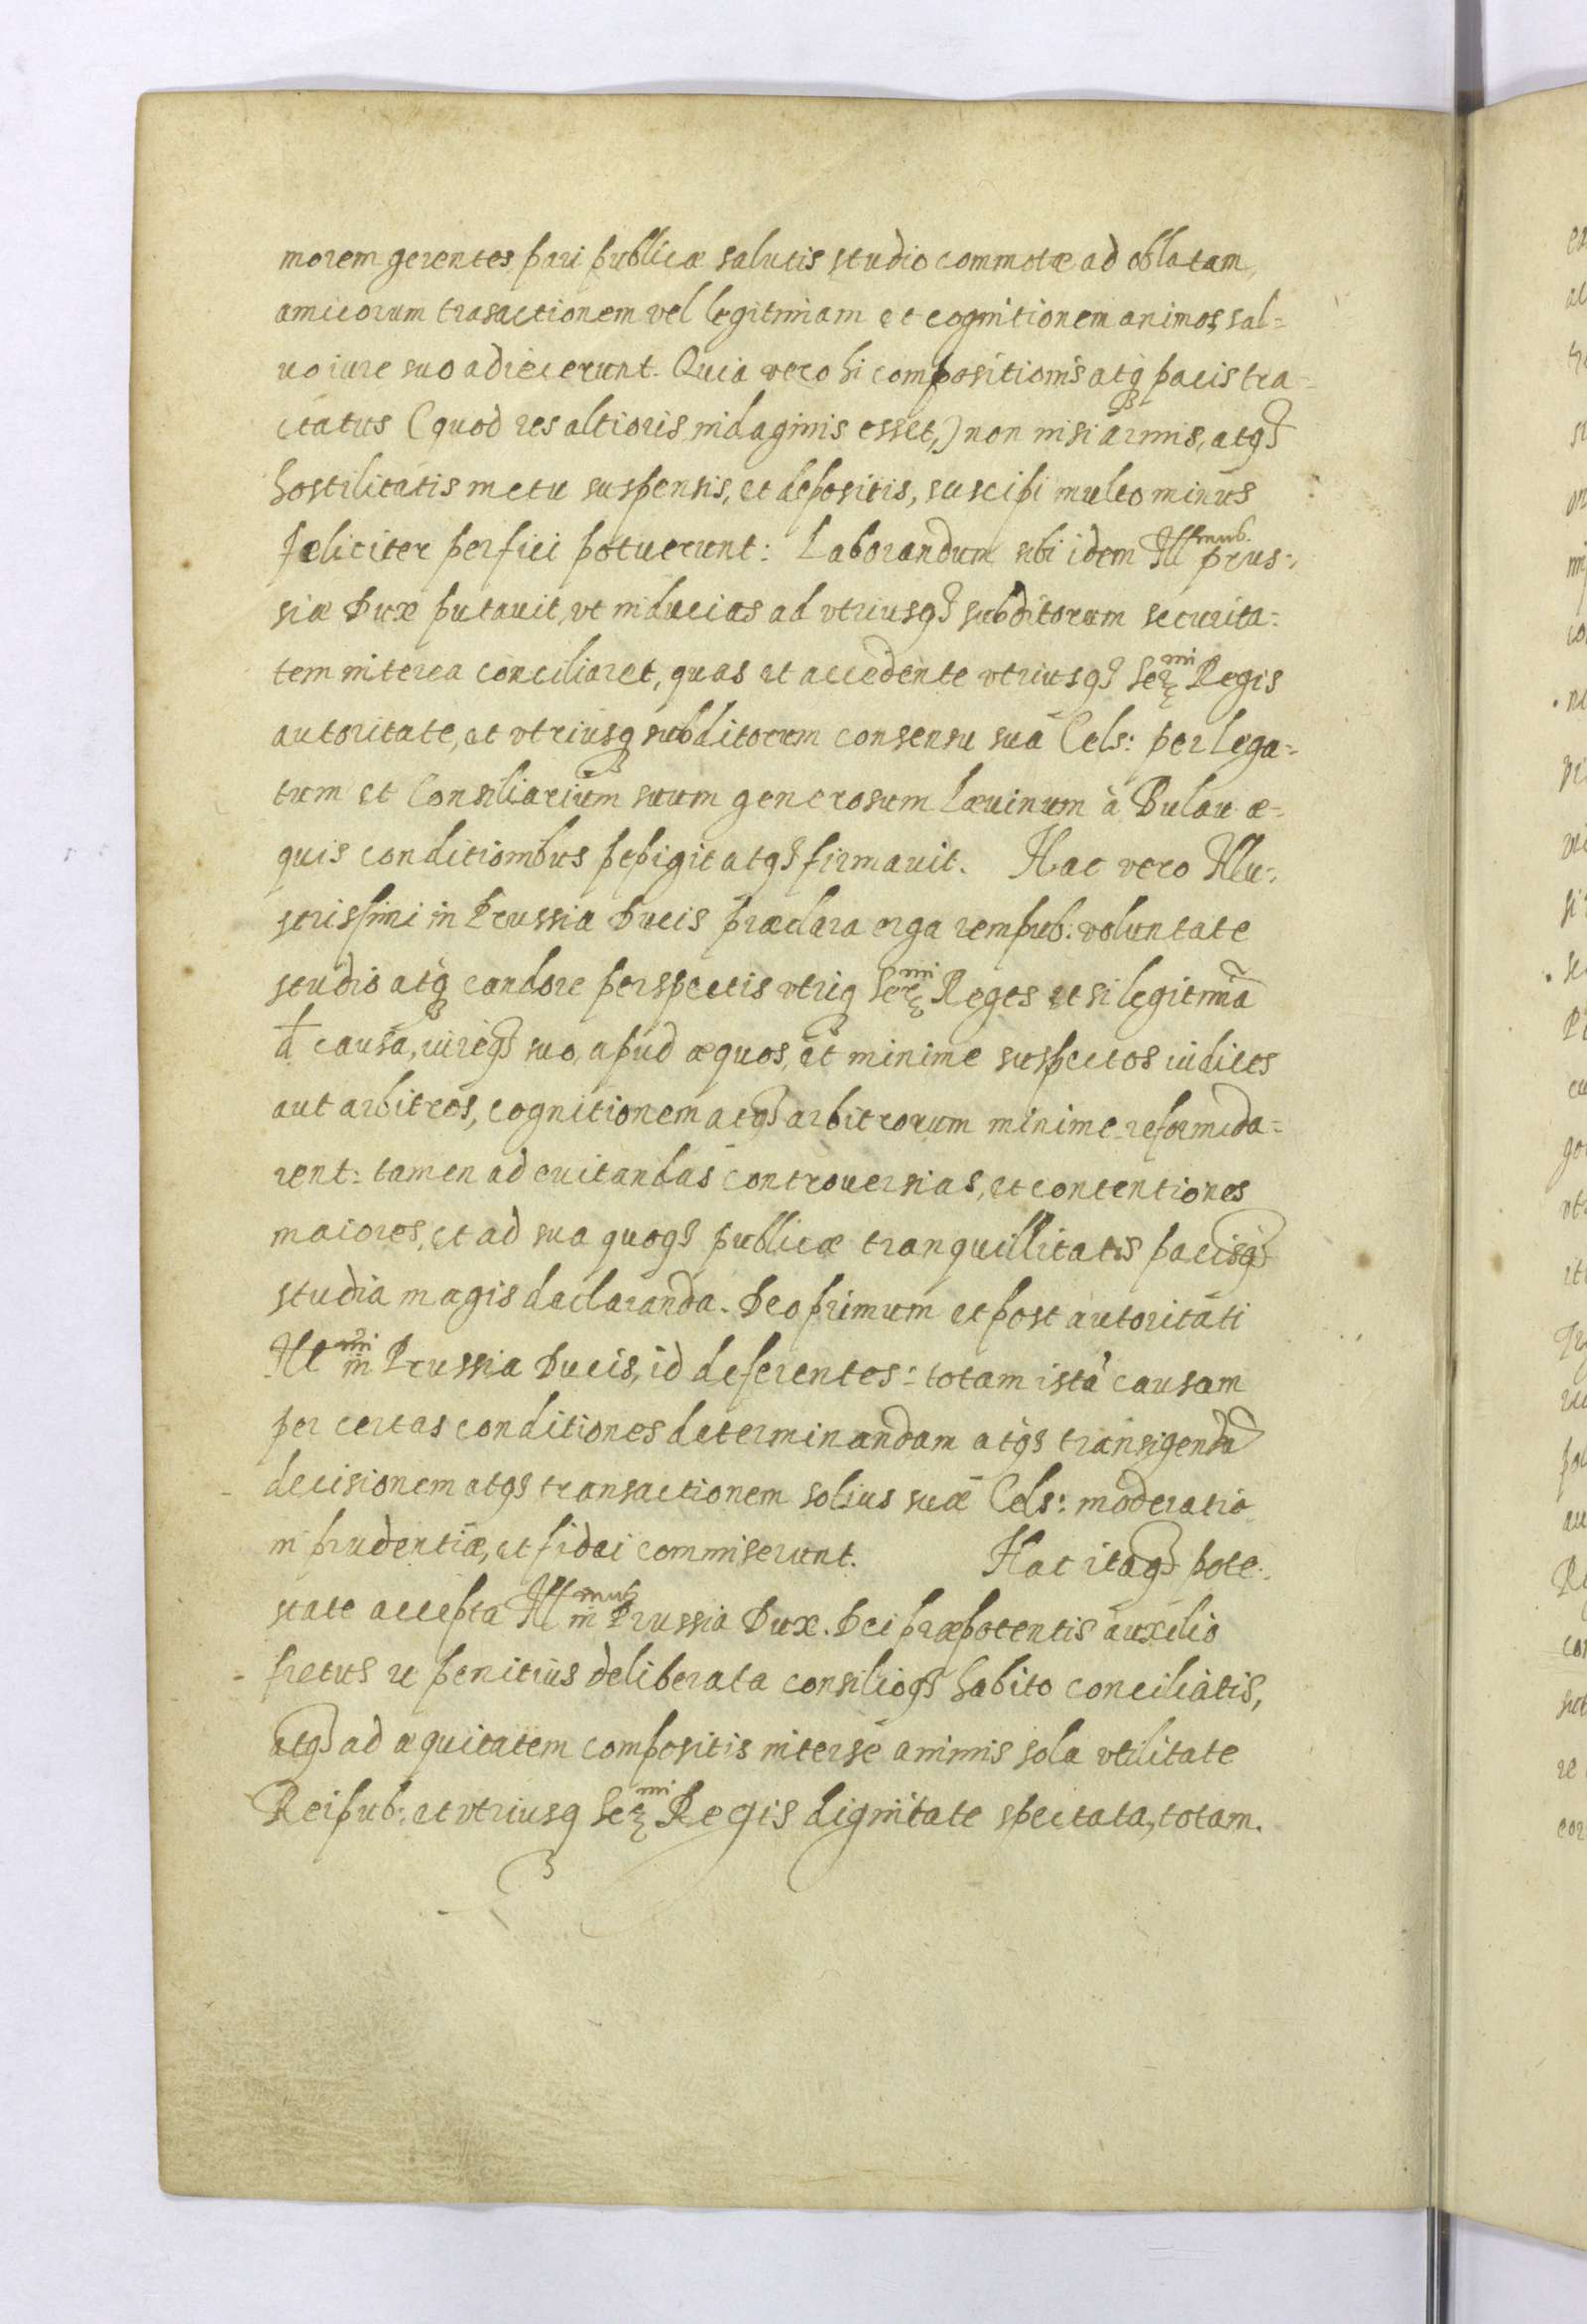 morem gerentes, pari publicæ salutis studio commotæ ad oblatam
amicorum trasactionem vel legitimam et cognitionem animos, sal=
uo iure suo adiecerunt. Quia vero hi compositionis atq3 pacis tra=
ctatus (quod res altioris indaginis esset,) non nisi armis, atq3
hostilitatis metu suspensis, et depositis, suscipi multo minus
fæliciter perfici potuerunt: Laborandum sibi idem Illmus. Prus=
siæ Dux putauit, vt inducias ad vtriusq3 subditorum securita=
tem interea conciliaret, quas et accedente vtriusq3 Sermi Regis
autoritate, et vtriusq3 subditorum consensu sua Cels: per lega=
tum et Consiliarium suum generosum Læuinum à Bulau æ=
quis conditionibus pepigit atq3 firmauit. Hac vero Illu=
strissimi in Prussia Ducis præclara erga rempub: voluntate
studio atq3 candore perspectis vtriq3 Sermi Reges et si legitimā
ā causa, iureq3 suo, apud æquos, et minime suspectos iudices
aut arbitros, cognitionem atq3 arbitrorum minime reformida=
rent: tamen ad euitandas controuersias, et contentiones
maiores, et ad sua quoq3 publicæ tranquillitatis pacisq3
studia magis declaranda. Deo primum et post autoritati
Illmi in Prussia Ducis, id deferentes: totam istā causam
per certas conditiones determinandam atq3 transigendā
decisionem atq3 transactionem solius suæ Cels: moderatio
ni prudentiæ, et fidei commiserunt. Hac itaq3 pote=
state accepta Illmus in Prussia Dux. Dei præpotentis auxilio
fretus re penitius deliberata consilioq3 habito conciliatis,
atq3 ad æquitatem compositis inter se animis sola vtilitate
Reipub: et vtriusq3 Sermi Regis dignitate spectata, totam.